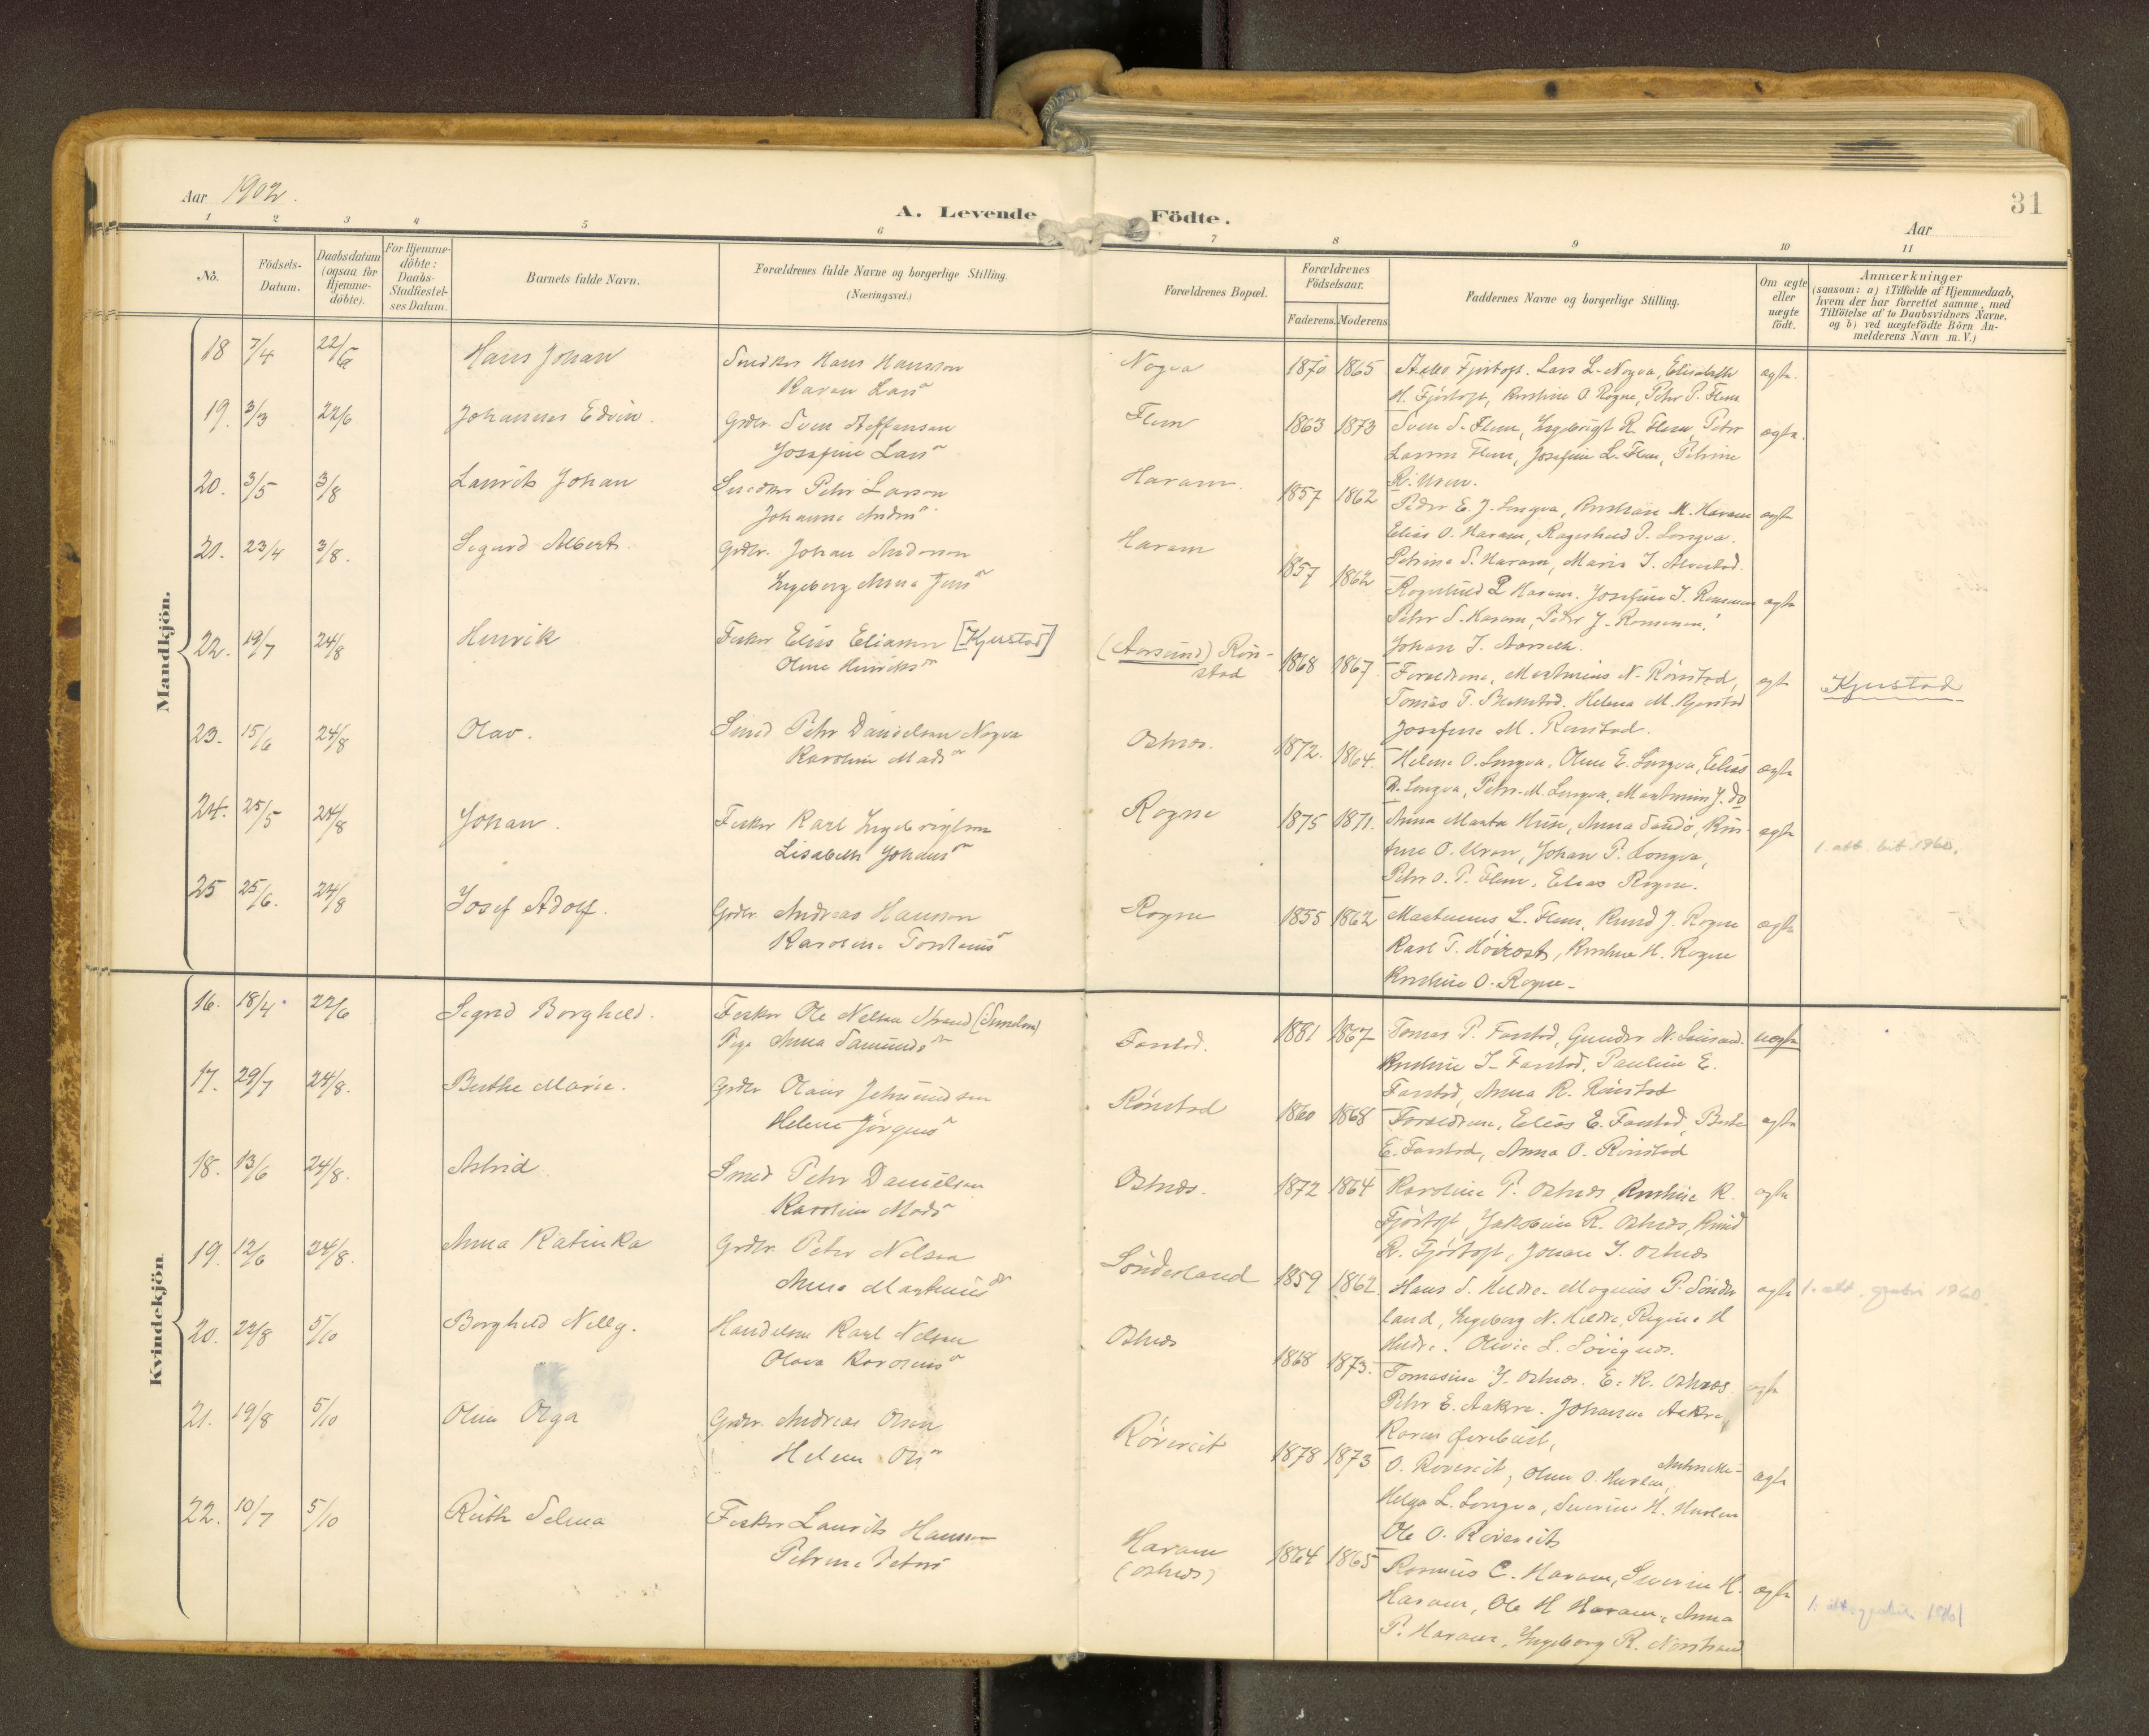 Aar 1902.
A. Levende Födte.
31
Aar
1 2 3 4 5 6 7 8 9 10 11
No.
Födsels-Datum.
Daabsdatum (ogsaa for Hjemme-döbte).
For Hjemme-döbte: Daabs-Stadfæstelses Datum.
Barnets fulde Navn.
Forældrenes fulde Navne og borgerlige Stilling. (Næringsvei.)
Forældrenes Bopæl.
Forældrenes Födselsaar.
Faderens. Moderens
Faddernes Navne og borgerlige Stilling.
Om ægte eller uægte födt.
Anmærkninger
(saasom: a) i Tilfælde af Hjemmedaab, hvem der har forrettet samme, med Tilföielse af to Daabsvidners Navne, og b) ved uægtefödte Börn Anmelderens Navn m.V.)
Mandkjön.
18 7/4 22/6 Hans Johan Snedker Hans Hansson Nogva 1870 1865 Fjørtoft. Lars L. Nogva, Elisabeth ægte.
Karen Lars" H. Fjørtoft, Kristine O Rogne, Peter P. Flem
19. 3/3 22/6 Johannes Edvin. Grdbr. Sven Steffensen Flem 1863 1873 Sven S. Flem, Ingebrigt R. Flem Peter ægte.
Josefine Lars" Larsen Flem, Josefine L. Flem, Petrine
20. 3/5 3/8 Laurits Johan Snedker Peter Larsen Haram. 1857 1862 Peder E. J. Longva, M. Haram ægte
Johanne Anders" Elias O. Haram, Ragnhild P. Longva.
21. 23/4 3/8. Sigurd Albert. Grdbr. Johan Andersen Haram 1857 1862 Petrine S. Haram, Marie J.
Ingeborg Anna Jens" Ragnhild P Haram. Josefine J. ægte
Peter S. Haram, Peder J.
Johan J.
22. 19/7 24/8 Henrik Fisker Elias Eliassen [Kjerstad] (Aarsund) Rönstad 1868 1867. Forældrene, Martinius N. Rönstad, ægte Kjerstad
Oline Henriks" Tomas T. Helena M. Kjerstad
Josefine M. Rönstad.
23. 15/6 24/8 Olav. Smed Petr Danielsen Nogva Ostnes. 1872. 1864. Helene O. Longva, Oline E. Longva, Elias ægte
Karoline Mads" R. Longva, Petr. M. Longva, Martinius J. do
24. 25/5 24/8 Johan. Fisker Karl Ingebrigtsen Rogne 1875 1871. Anna Marta Huse, Anna Sandö, ægte 1. att. 1960.
Lisabeth Johans" O. Uren, Johan P. Longva,
Petr O. P. Flem. Elias Rogne.
25 25/6. 24/8 Josef Adolf. Grdbr. Andreas Hansson Rogne 1855 1862 Martinus L. Flem, Knud J. Rogne ægte
Karoline Karl T. Kristine H. Rogne
Kristine O. Rogne.
Kvindekjön
16. 18/4 22/6 Sigrid Borghild. Fisker Ole Nelsen Strand Farstad. 1881 1867 Tomas P. Farstad, Gunder N. uægte
Pige Anna Samunds" Kristine J. Farstad, Pauline E.
Farstad, Anna R. Rönstad
17. 29/7 24/8. Berthe Marie. Grdbr Olaus Rönstad 1860 1868 Forældrene, Elias E. Farstad, Berte ægte
Helene Jörgens" E. Farstad, Anna O. Rönstad
18. 13/6 24/8. Astrid Smed Petr Danielsen Ostnes. 1872 1864 Karoline P. Ostnes Kristine K. ægte
Karoline Mads" Fjörtoft, Jakobine R. Ostnes, Knud
R. Fjörtoft, Johan J. Ostnes
19. 12/6 24/8. Anna Katinka Grdbr. Peter Nelsen Sönderland 1859 1862. Hans S. Hildre. Magnus P. Sönderland, ægte 1. att. 1960.
Anna Martinus" Ingeborg N. Hildre, Regine H
Hildre. Olivie L.
20. 22/8 5/10 Borghild Nelly. Handelsm Karl Nelsen Ostnes 1868 1873. Tomasine J. Ostnes. E. R. Ostnes. ægte
Olava Karolius" Petr E. Aakre. Johanne Aakre,
Karen
21. 19/8 5/10 Olina Olga Grdbr. Andreas Olsen Rövereit 1878 1873 O. Rövereit, Oline O. ægte
Helene Ols" Helga L. Longva, Severine H.
Ole O. Rövereit
22. 10/7 5/10 Ruth Selma Fisker Laurits Hansson Haram (Ostnes) 1864 1865 Rasmus C. Haram, Severin H. ægte 1. 1961
Petrine Peters" Haram, Ole H Haram, Anna
P. Haram, Ingeborg R. Norstrand